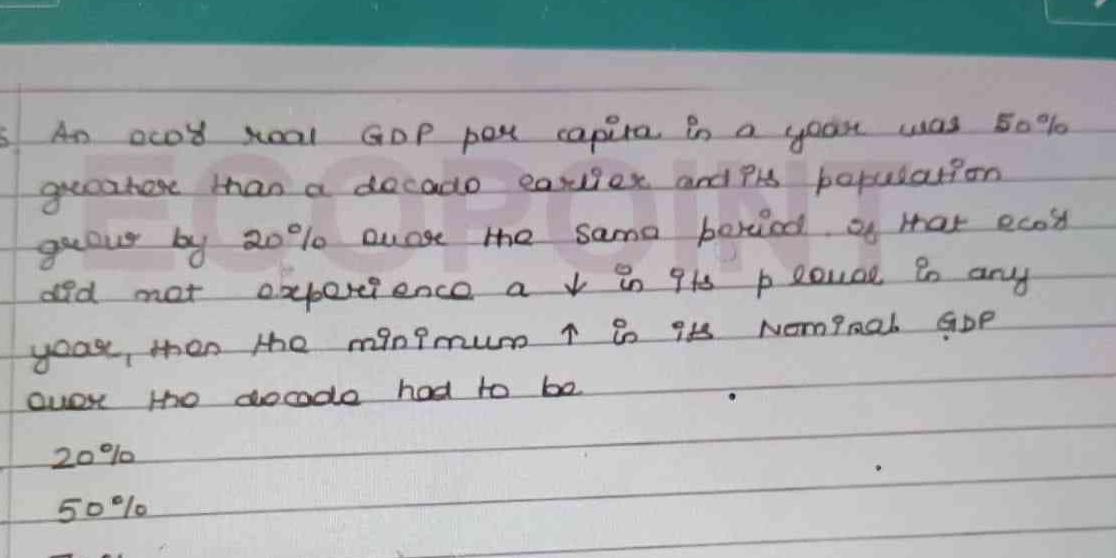 An eco's real GDP per capita in a year was 50%
greater than a decade earlier and its population
grew by 20% over the same period. If that eco's
did not experience a ↓ in its p level in any
year, then the minimum ↑ in its Nominal GDP
over the decade had to be
20%
50%
ECOPOINT